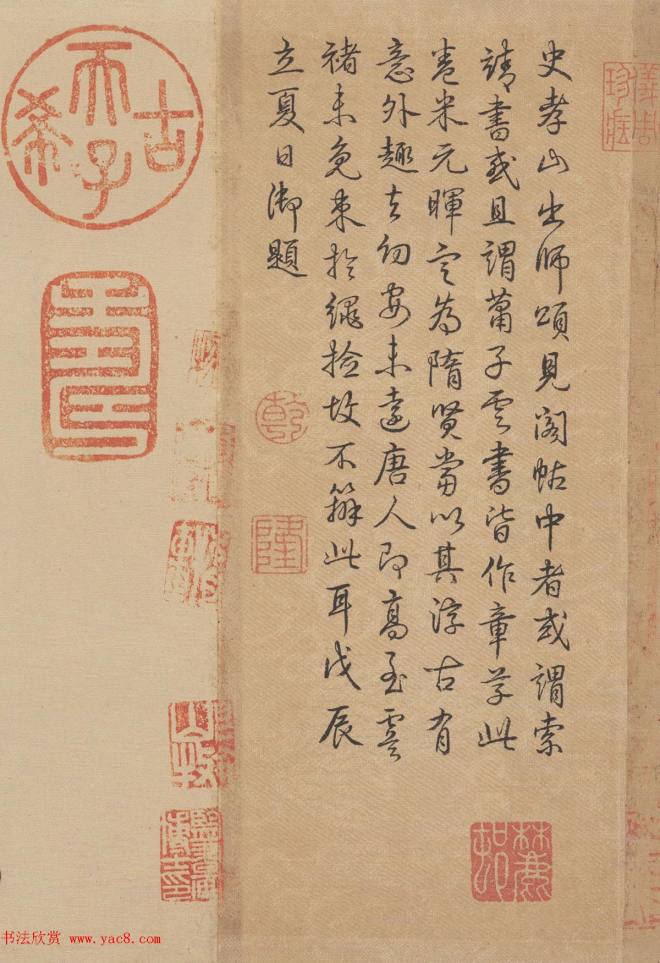 史孝山出師頌見閣帖中者或謂索
靖書或且謂蕭子雲書皆作章草此
卷米元暉定為隋賢當以其淳古有
意外趣去幼安未遠唐人即高至虞
褚未免束於繩撿故不辦此耳戊辰
立夏日御題
乾
隆
古希天子
書法欣赏 www.yac8.com